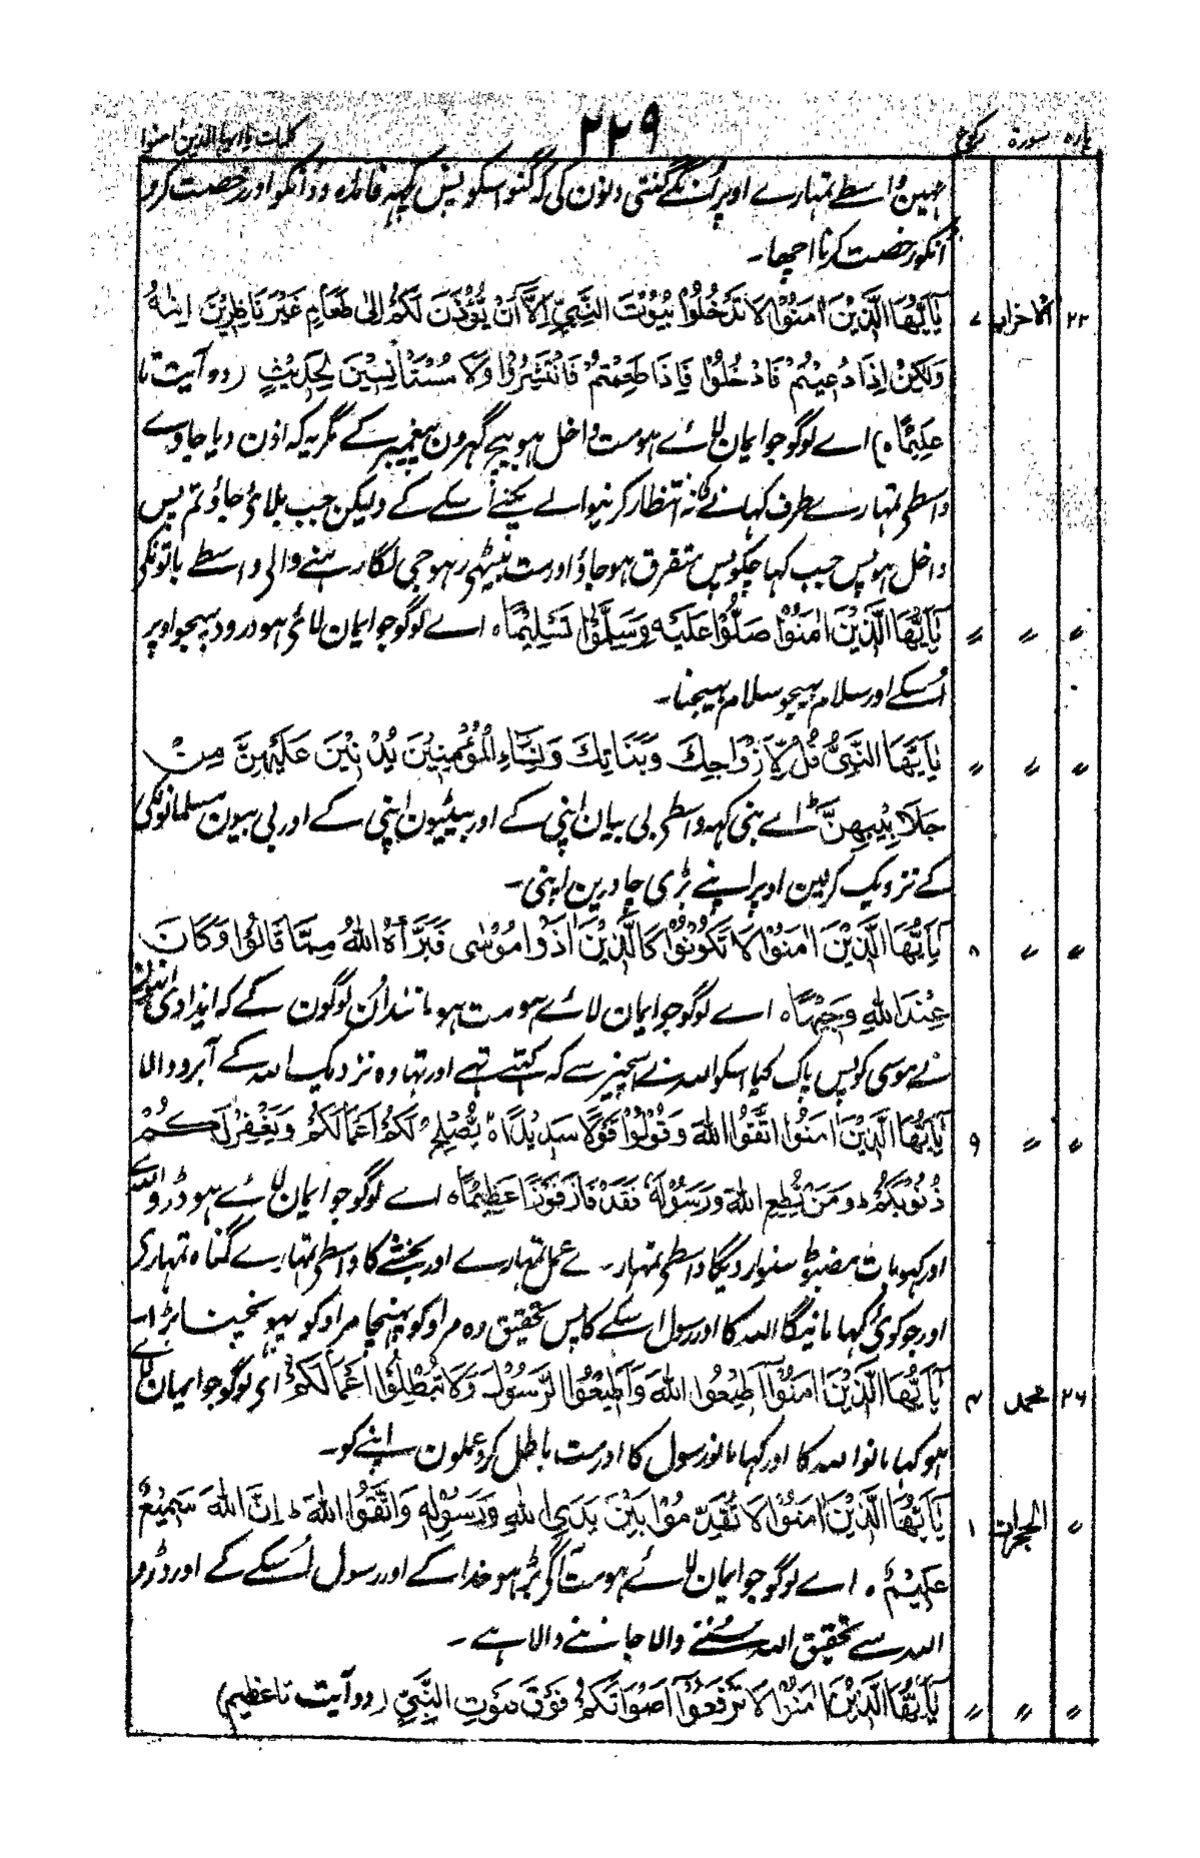 پارہ سورۃ رکوع ۲۲۹ کلمات یا ایہا الذین امنوا
نہین واسطے تمہارے اوپر اُنکے گنتی دنون کی کہ گنو اسکو پس کچہہ فائدہ دو انکو اور رخصت کرو
انکو رخصت کرنا اچھا۔
۲۲ الاحزاب ۷ يٰٓاَيُّهَا الَّذِيْنَ اٰمَنُوْا لَا تَدْخُلُوْا بُيُوْتَ النَّبِيِّ اِلَّآ اَنْ يُّؤْذَنَ لَكُمْ اِلٰى طَعَامٍ غَيْرَ نَاظِرِيْنَ اِنٰىهُ
وَلٰكِنْ اِذَا دُعِيْتُمْ فَادْخُلُوْا فَاِذَا طَعِمْتُمْ فَانْتَشِرُوْا وَلَا مُسْتَاْنِسِيْنَ لِحَدِيْثٍ (دو آیت تا
عَلِيْمًا ہ) اے لوگو جو ایمان لائے ہو مت داخل ہو بیچ گہرون پیغمبر کے مگر یہ کہ اذن دیا جاوے
واسطے تمہارے طرف کہانے کا نہ انتظار کرنیوالے پکنے اُسکے کے ولیکن جب بلائے جاؤ تم پس
داخل ہو پس جب کہا چکو پس متفرق ہو جاؤ اور مت بیٹھے رہو جی لگا رہنے والی واسطے باتونکے
〃 〃 〃 يٰٓاَيُّهَا الَّذِيْنَ اٰمَنُوْا صَلُّوْا عَلَيْهِ وَسَلِّمُوْا تَسْلِيْمًا ہ اے لوگو جو ایمان لائے ہو درود بہیجو اوپر
اُسکے اور سلام بہیجو سلام بہیجنا۔
〃 〃 〃 يٰٓاَيُّهَا النَّبِيُّ قُلْ لِّاَزْوَاجِكَ وَبَنَاتِكَ وَنِسَآءِ الْمُؤْمِنِيْنَ يُدْنِيْنَ عَلَيْهِنَّ مِنْ
جَلَابِيْبِهِنَّ ط اے نبی کہہ واسطے بی بیان اپنی کے اور بیٹیون اپنی کے اور بی بیون مسلمانونکی
کے نزدیک کرلین اوپر اپنے بڑی چادرین اپنی۔
〃 〃 ۸ يٰٓاَيُّهَا الَّذِيْنَ اٰمَنُوْا لَا تَكُوْنُوْا كَالَّذِيْنَ اٰذَوْا مُوْسٰى فَبَرَّاَهُ اللّٰهُ مِمَّا قَالُوْا وَكَانَ
عِنْدَ اللّٰهِ وَجِيْهًا ہ اے لوگو جو ایمان لائے ہو مت ہو مانند اُن لوگون کے کہ ایذا دی انہون
نے موسی کو پس پاک کیا اسکو اللہ نے اسچیز سے کہ کہتے تہے اور تہا وہ نزدیک اللہ کے آبرو والا
〃 〃 ۹ يٰٓاَيُّهَا الَّذِيْنَ اٰمَنُوا اتَّقُوا اللّٰهَ وَقُوْلُوْا قَوْلًا سَدِيْدًا ہ يُّصْلِحْ لَكُمْ اَعْمَالَكُمْ وَيَغْفِرْ لَكُمْ
ذُنُوْبَكُمْ ط وَمَنْ يُّطِعِ اللّٰهَ وَرَسُوْلَهٗ فَقَدْ فَازَ فَوْزًا عَظِيْمًا ہ اے لوگو جو ایمان لائے ہو ڈرو اللہ سے
اور کہو بات مضبوط سنوار دیگا واسطے تمہارے عمل تمہارے اور بخشے گا واسطے تمہارے گناہ تمہاری
اور جو کوئی کہا مانیگا اللہ کا اور رسول اسکے کا پس تحقیق وہ مراد کو پہنچا مراد کو پہونچنا بڑا۔
۲۶ محمد ۴ يٰٓاَيُّهَا الَّذِيْنَ اٰمَنُوْٓا اَطِيْعُوا اللّٰهَ وَاَطِيْعُوا الرَّسُوْلَ وَلَا تُبْطِلُوْٓا اَعْمَالَكُمْ ای لوگو جو ایمان لائے
ہو کہا مانو اللہ کا اور کہا مانو رسول کا اور مت باطل کرو عملون اپنے کو۔
〃 الحجرات ۱ يٰٓاَيُّهَا الَّذِيْنَ اٰمَنُوْا لَا تُقَدِّمُوْا بَيْنَ يَدَيِ اللّٰهِ وَرَسُوْلِهٖ وَاتَّقُوا اللّٰهَ ط اِنَّ اللّٰهَ سَمِيْعٌ
عَلِيْمٌ ہ اے لوگو جو ایمان لائے ہو مت آگے بڑہو خدا کے اور رسول اُسکے کے اور ڈرو
اللہ سے تحقیق اللہ سننے والا جاننے والا ہے۔
〃 〃 〃 يٰٓاَيُّهَا الَّذِيْنَ اٰمَنُوْا لَا تَرْفَعُوْٓا اَصْوَاتَكُمْ فَوْقَ صَوْتِ النَّبِيِّ (دو آیت تا عظیم)